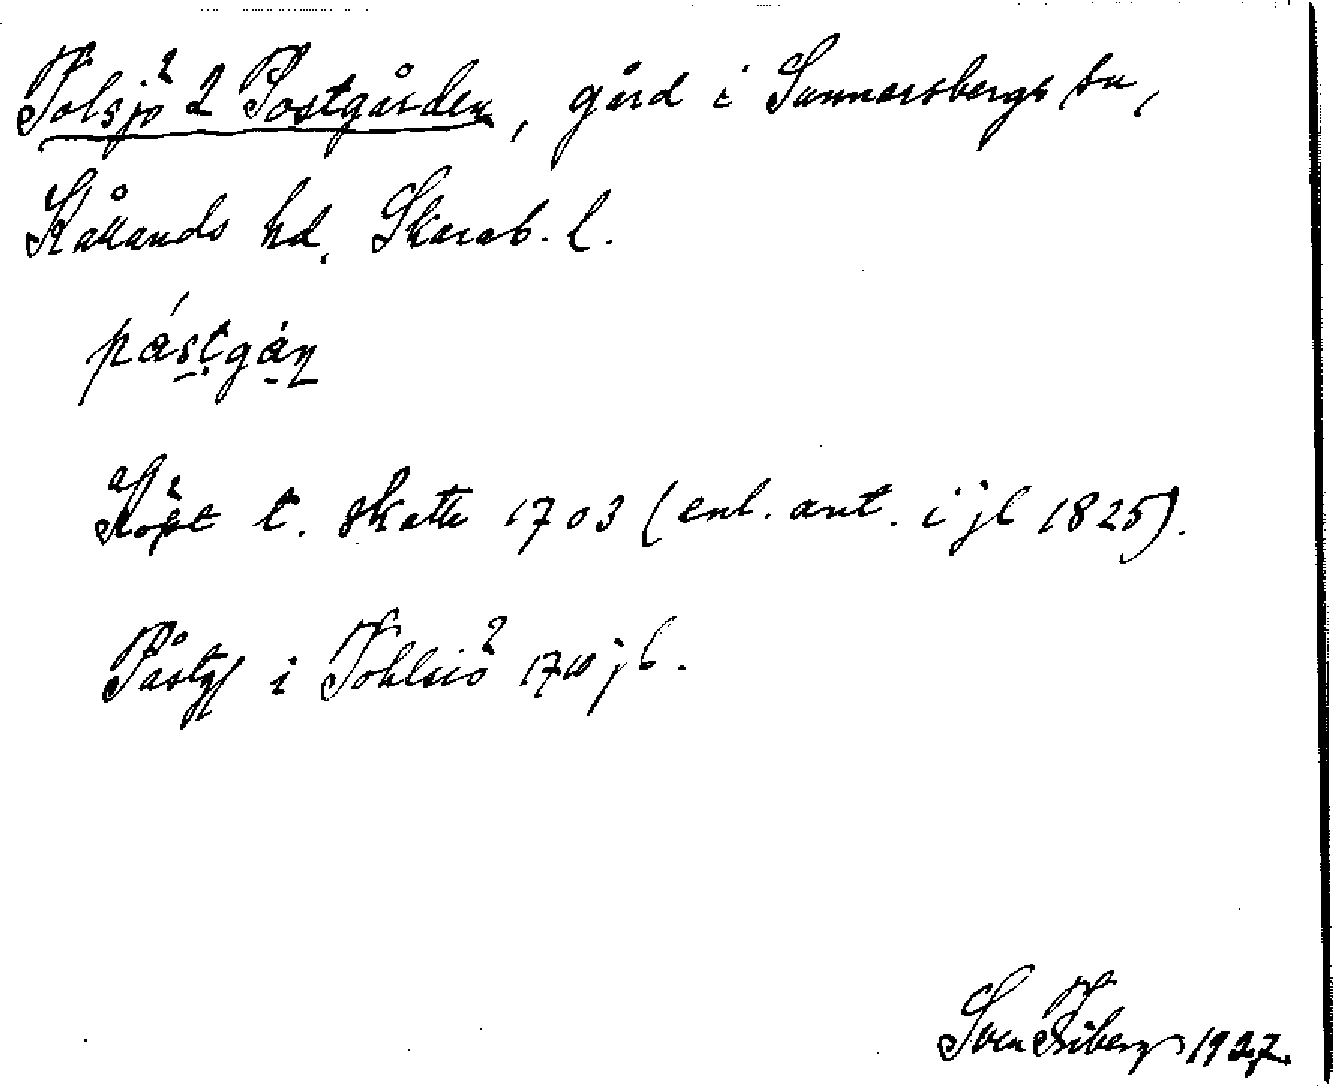 Tolsjö 2 Postgården, gård i Sunnersbergs sn,
Kållands hd. Skarab. l.
påstgån
Köpt t. skatte 1703 (enl. ant. i jb 1825).
Påstg i Tohlsiö 1710 jb.
Sven Friberg 1927.